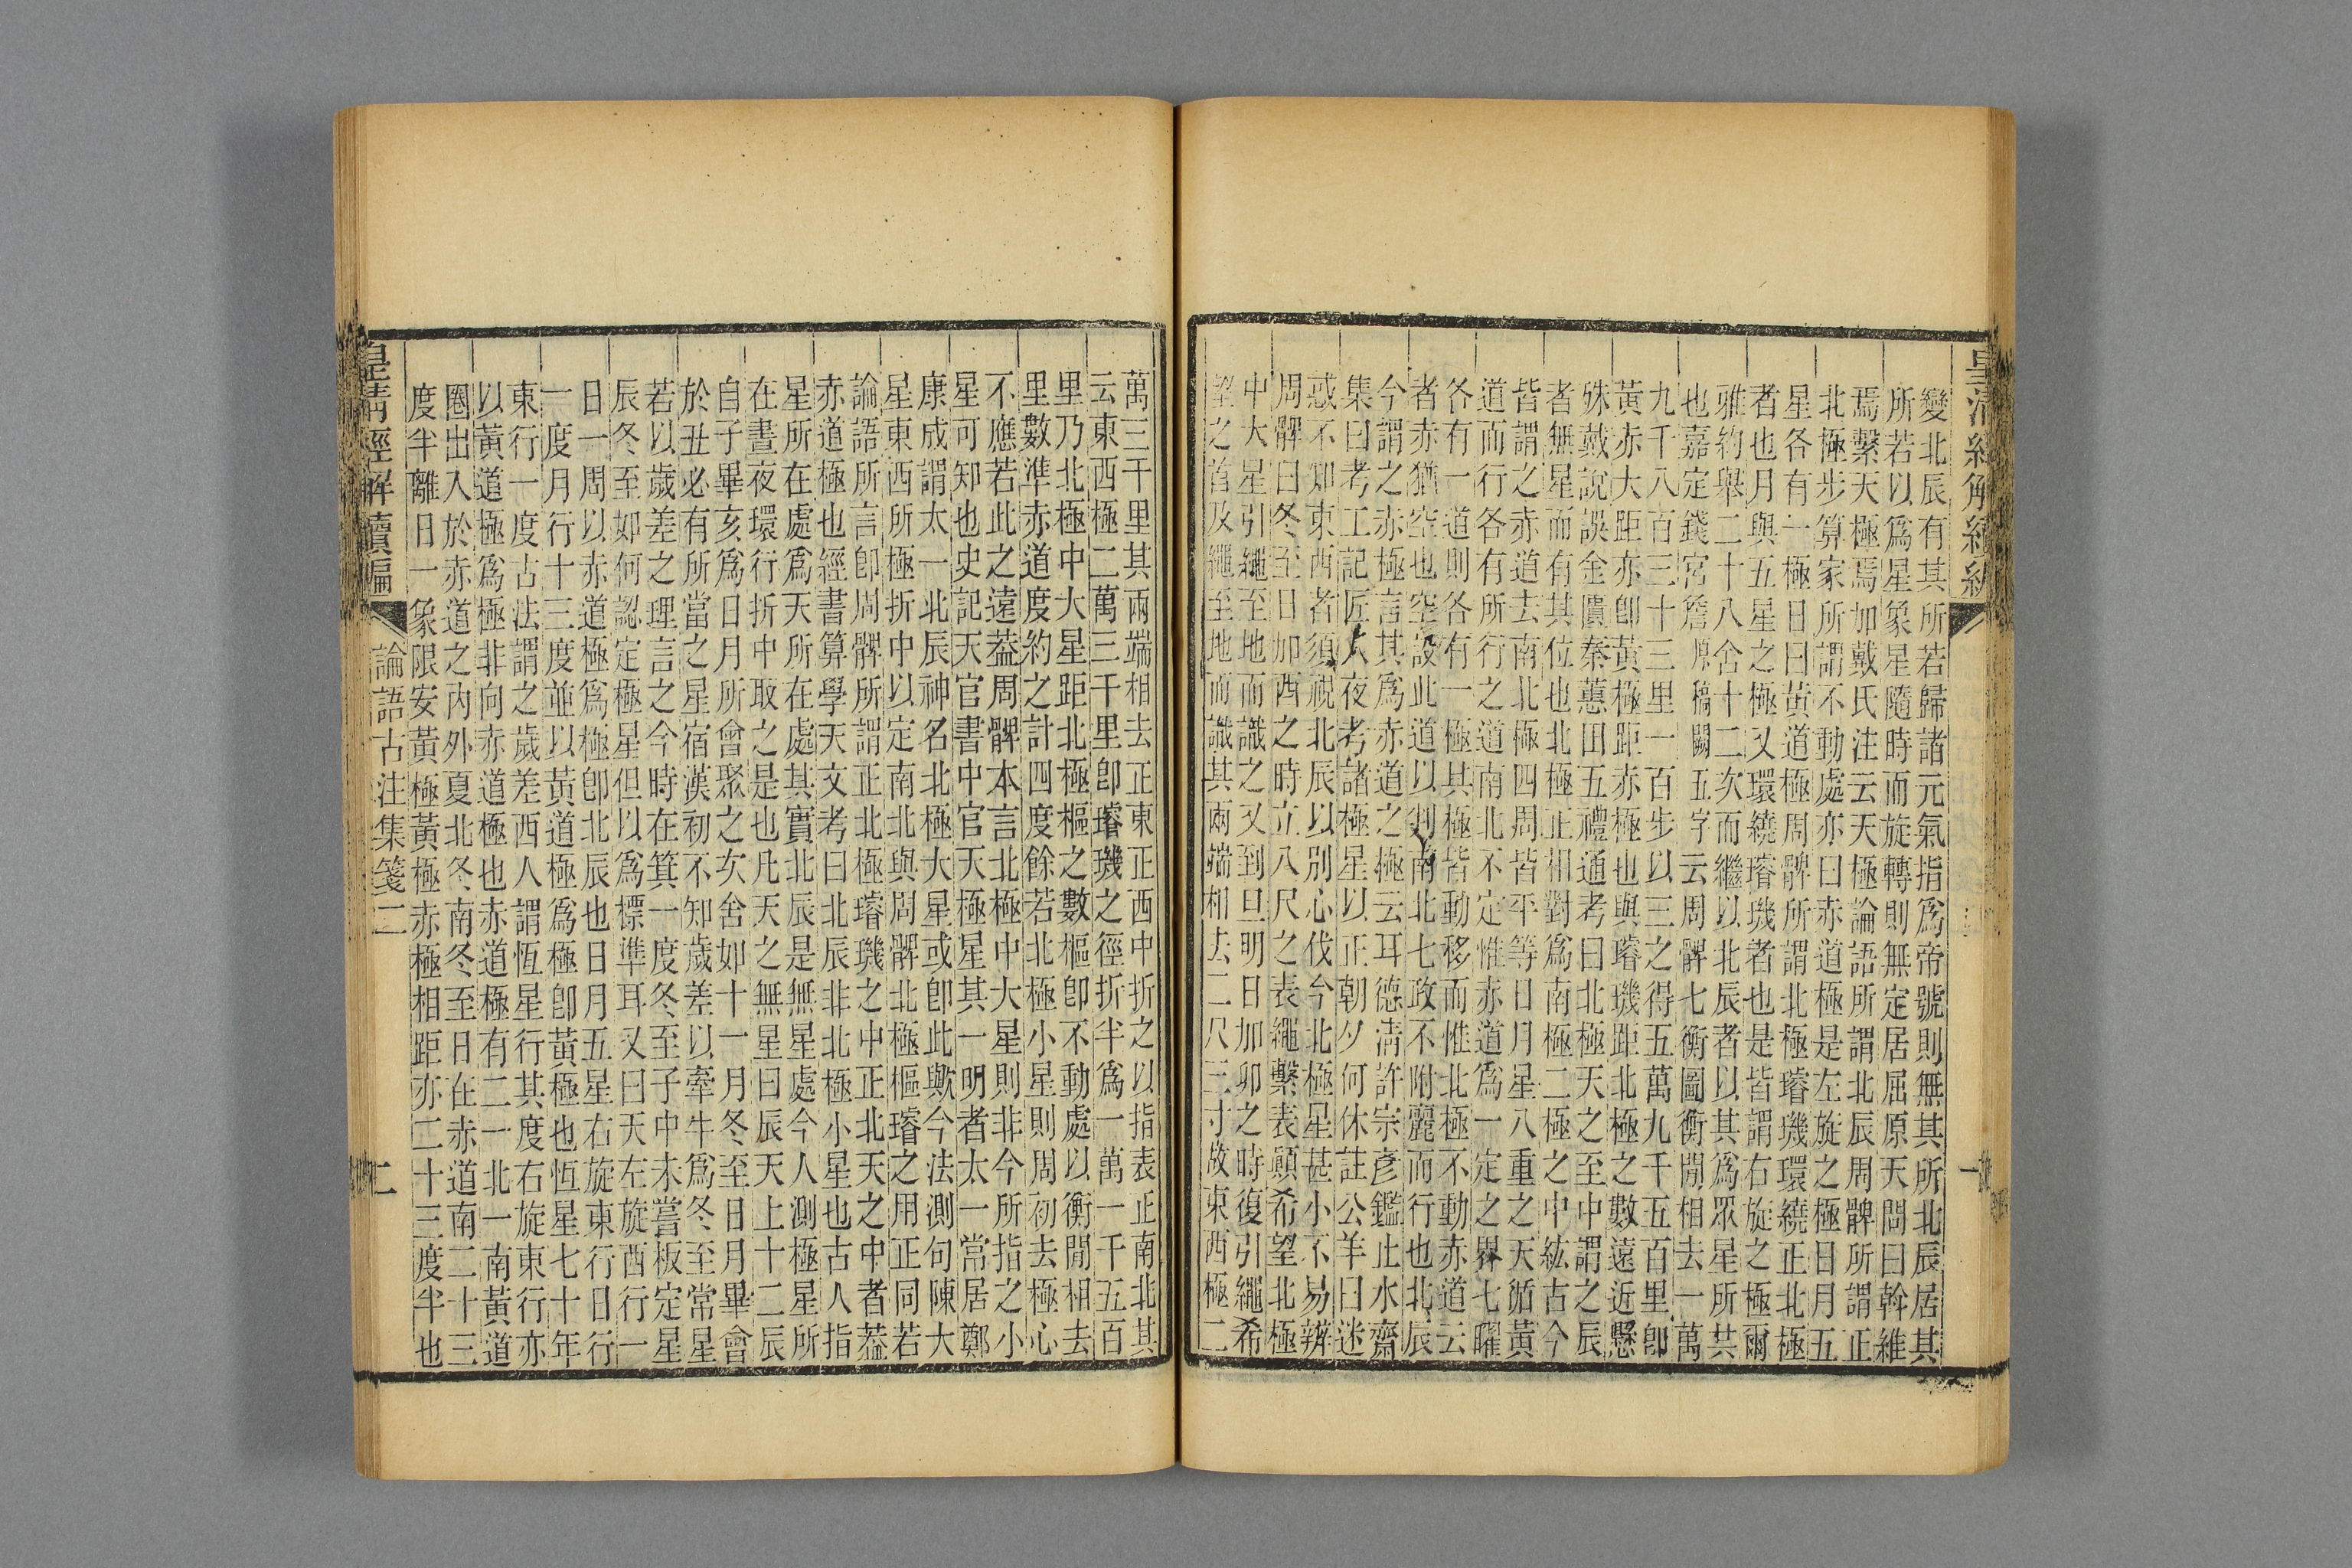 變北辰有其所若歸諸元氣指爲帝號則無其所北辰居其
所若以爲星象星隨時而旋轉則無定居屈原天問曰斡維
焉繫天極焉加戴氏注云天極論語所謂北辰周髀所謂正
北極步算家所謂不動處亦曰赤道極是左旋之極日月五
星各有一極日曰黃道極周髀所謂北極璿璣環繞正北極
者也月與五星之極又環繞璿璣者也是皆謂右旋之極爾
雅約舉二十八舍十二次而繼以北辰者以其爲眾星所共
也嘉定錢宮詹原稿闕五字云周髀七衡圖衡閒相去一萬
九千八百三十三里一百步以三之得五萬九千五百里卽
黃赤大距亦卽黃極距赤極也與璿璣距北極之數遠近懸
殊戴說誤金匱秦蕙田五禮通考曰北極天之至中謂之辰
者無星而有其位也北極正相對爲南極二極之中紘古今
皆謂之赤道去南北極四周皆平等日月星八重之天循黃
道而行各有所行之道南北不定惟赤道爲一定之界七曜
各有一道則各有一極其極皆動移而惟北極不動赤道云
者赤猶空也空設此道以判南北七政不附麗而行也北辰
今謂之赤極言其爲赤道之極云耳德清許宗彥鑑止水齋
集曰考工記匠人夜考諸極星以正朝夕何休註公羊曰迷
惑不知東西者須視北辰以別心伐今北極星甚小不易辨
周髀曰冬至日加酉之時立八尺之表繩繫表顚希望北極
中大星引繩至地而識之又到旦明日加卯之時復引繩希
望之首及繩至地而識其兩端相去二尺三寸故東西極二
萬三千里其兩端相去正東正西中折之以指表正南北其
云東西極二萬三千里卽璿璣之徑折半爲一萬一千五百
里乃北極中大星距北極樞之數樞卽不動處以衡閒相去
里數準赤道度約之計四度餘若北極小星則周初去極心
不應若此之遠葢周髀本言北極中大星則非今所指之小
星可知也史記天官書中官天極星其一明者太一常居鄭
康成謂太一北辰神名北極大星或卽此歟今法測句陳大
星東西所極折中以定南北與周髀北極樞璿之用正同若
論語所言卽周髀所謂正北極璿璣之中正北天之中者葢
赤道極也經書算學天文考曰北辰非北極小星也古人指
星所在處爲天所在處其實北辰是無星處今人測極星所
在晝夜環行折中取之是也凡天之無星曰辰天上十二辰
自子畢亥爲日月所會聚之次舍如十一月冬至日月畢會
於丑必有所當之星宿漢初不知歲差以牽牛爲冬至常星
若以歲差之理言之今時在箕一度冬至子中未嘗板定星
辰冬至如何認定極星但以爲標準耳又曰天左旋西行一
日一周以赤道極爲極卽北辰也日月五星右旋東行日行
一度月行十三度並以黃道極爲極卽黃極也恆星七十年
東行一度古法謂之歲差西人謂恆星行其度右旋東行亦
以黃道極爲極非向赤道極也赤道極有二一北一南黃道
圈出入於赤道之內外夏北冬南冬至日在赤道南二十三
度半離日一象限安黃極黃極赤極相距亦二十三度半也
皇清經解續編
論語古注集箋二
二